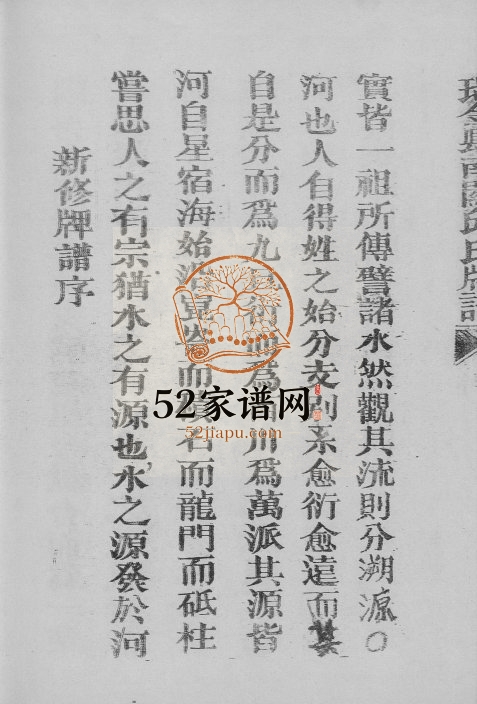 新修牌譜序
嘗思人之有宗猶水之有源也水之源發於河
河自星宿海始 而 石而龍門而砥柱
自是分而爲九 而爲 川爲萬派其源皆
河也人自得姓之始分支別系愈衍愈遠而其
實皆一祖所傳譬諸水然觀其流則分溯源○
瑞金縣南關 氏牌譜
52家谱网
52jiapu.com